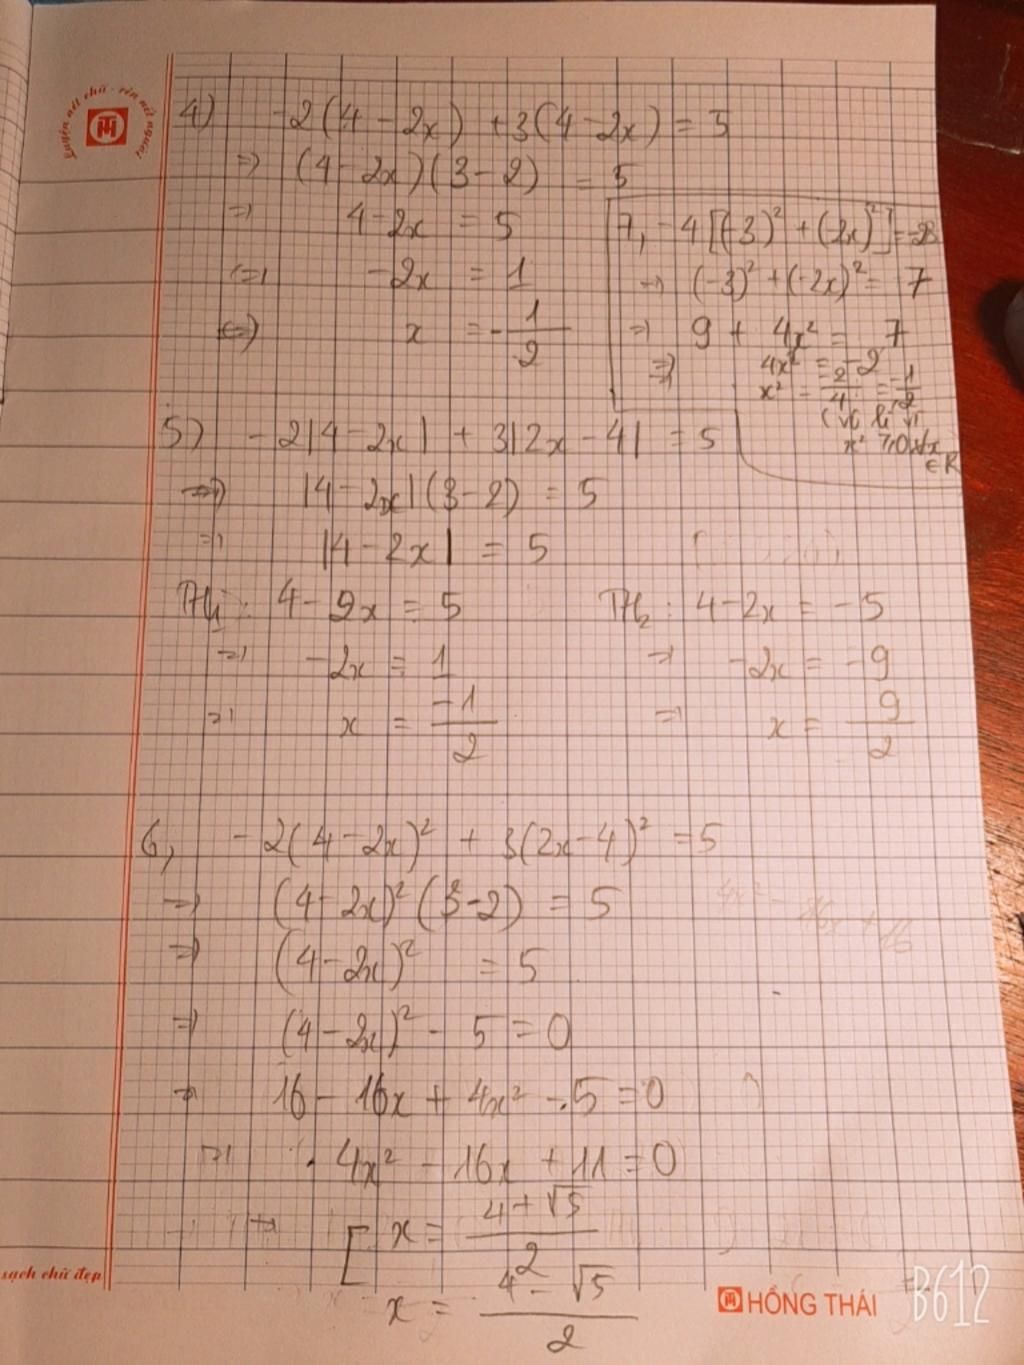 luyện nét chữ - rèn nết người
4) -2(4 - 2x) + 3(4 - 2x) = 5
=> (4 - 2x)(3 - 2) = 5
=> 4 - 2x = 5
<=> -2x = 1
<=> x = -1/2
7, -4[(-3)² + (2x)²] = -28
=> (-3)² + (-2x)² = 7
=> 9 + 4x² = 7
=> 4x² = -2
x² = -2/4 = -1/2
(vô lí vì
x² ≥ 0 ∀x
∈ R
5) -2|4 - 2x| + 3|2x - 4| = 5
=> |4 - 2x|(3 - 2) = 5
=> |4 - 2x| = 5
TH₁: 4 - 2x = 5 TH₂: 4 - 2x = -5
=> -2x = 1 => -2x = -9
=> x = -1/2 => x = 9/2
6, -2(4 - 2x)² + 3(2x - 4)² = 5
=> (4 - 2x)²(3 - 2) = 5
=> (4 - 2x)² = 5
=> (4 - 2x)² - 5 = 0
=> 16 - 16x + 4x² - 5 = 0
=> 4x² - 16x + 11 = 0
=> [ x = (4 + √5)/2
x = (4 - √5)/2
4x² - 16x + 16
sạch chữ đẹp
HỒNG THÁI
B612